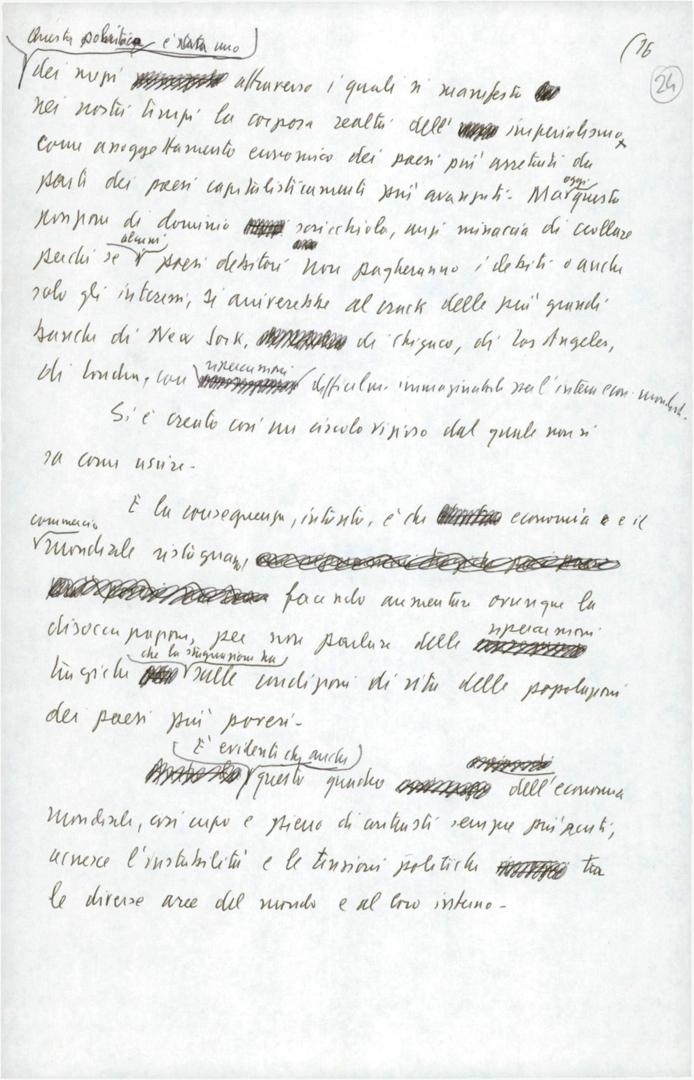 Questa politica è stata uno
(16
24
dei modi attraverso i quali si manifesta
nei nostri tempi la corposa realtà dell' imperialismo
come assoggettamento economico dei paesi più arretrati da
parte dei paesi capitalisticamente più avanzati. Ma oggi questa
posizione di dominio scricchiola, anzi minaccia di crollare
perché se alcuni paesi debitori non pagheranno i debiti o anche
solo gli interessi, si arriverebbe al crack delle più grandi
banche di New York, di Chigaco, di Los Angeles,
di Londra, con ripercussioni difficilm. immaginabili sull'intera econ. mondiale.
Si è creato così un circolo vizioso dal quale non si
sa come uscire.
E la conseguenza, intanto, è che economia e il
commercio
mondiale ristagnano,
facendo aumentare ovunque la
disoccupazione, per non parlare delle ripercussioni
tragiche che la stagnazione ha sulle condizioni di vita delle popolazioni
dei paesi più poveri.
È evidente che anche
questo quadro dell'economia
mondiale, così cupo e pieno di contrasti sempre più acuti,
accresce l'instabilità e le tensioni politiche tra
le diverse aree del mondo e al loro interno.